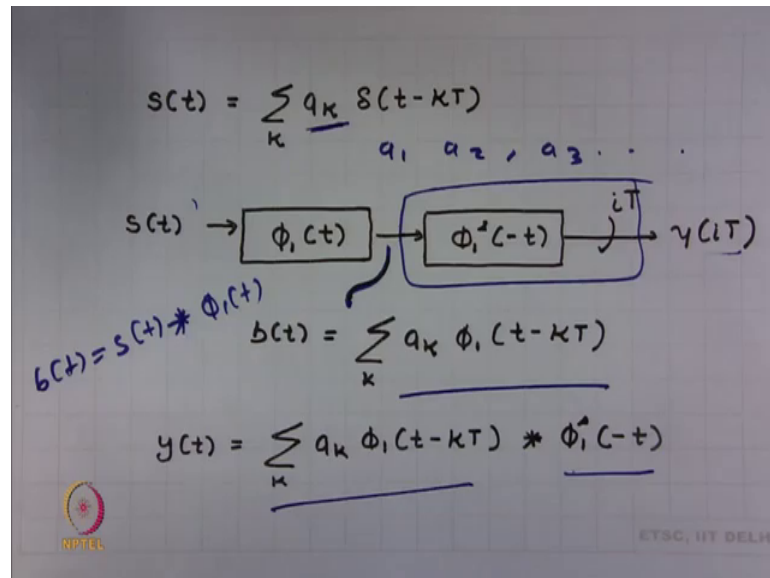 s(t) = ∑_k a_k δ(t-kT)
a_1 a_2 , a_3 . . .
s(t) → ϕ_1(t) → ϕ_1^*(-t) iT → y(iT)
b(t) = s(t) * ϕ_1(t)
b(t) = ∑_k a_k ϕ_1(t-kT)
y(t) = ∑_k a_k ϕ_1(t-kT) * ϕ_1^*(-t)
NPTEL
ETSC, IIT DELH